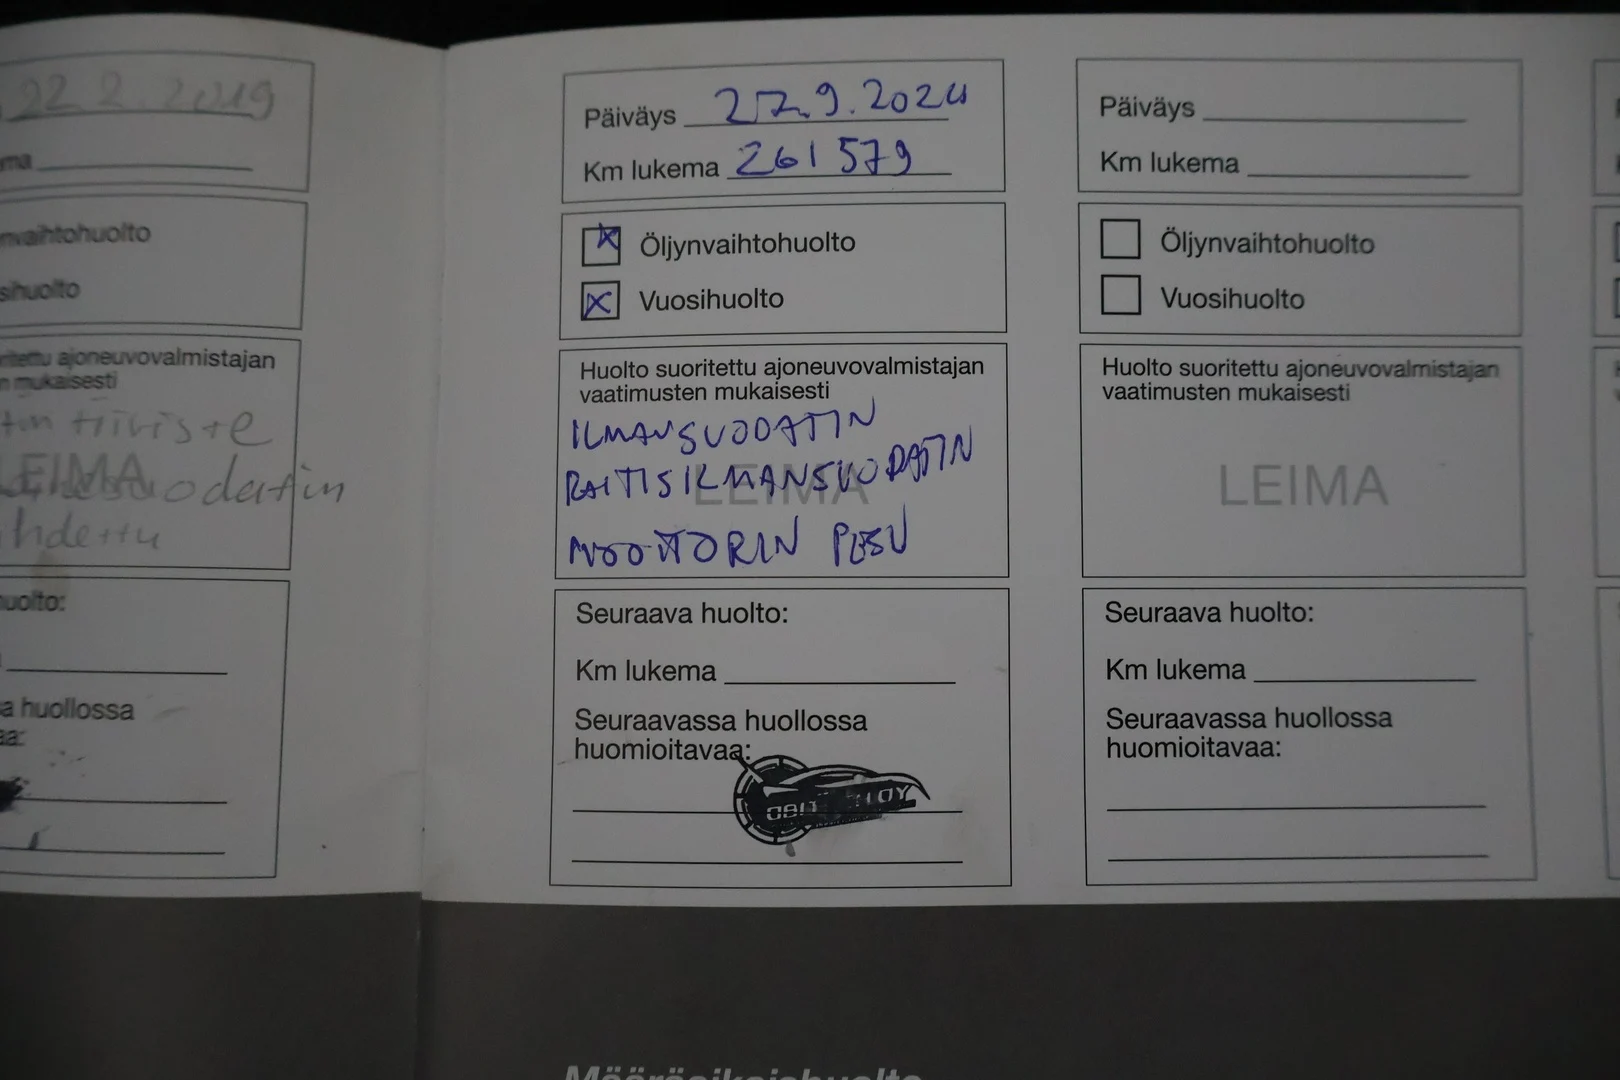 22.2.2019
ma
nvaihtohuolto
sihuolto
ritettu ajoneuvovalmistajan
n mukaisesti
tiiviste
LEIMA
uodatin
hdettu
huolto:
a huollossa
aa:
Päiväys 27.9.2024
Km lukema 261 579
Öljynvaihtohuolto
Vuosihuolto
Huolto suoritettu ajoneuvovalmistajan
vaatimusten mukaisesti
ILMANSUODATIN
RAITISILMANSUODATIN
LEIMA
MOOTTORIN PESU
Seuraava huolto:
Km lukema
Seuraavassa huollossa
huomioitavaa:
OY
Päiväys
Km lukema
Öljynvaihtohuolto
Vuosihuolto
Huolto suoritettu ajoneuvovalmistajan
vaatimusten mukaisesti
LEIMA
Seuraava huolto:
Km lukema
Seuraavassa huollossa
huomioitavaa:
Määräaikaishuolto